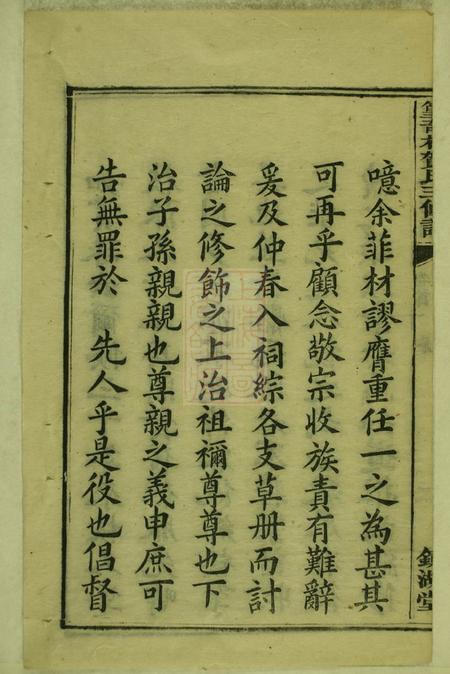 噫余菲材謬膺重任一之為甚其
可再乎顧念敬宗收族責有難辭
爰及仲春入祠綜各支草册而討
論之修飾之上治祖禰尊尊也下
治子孫親親也尊親之義申庶可
告無罪於 先人乎是役也倡督